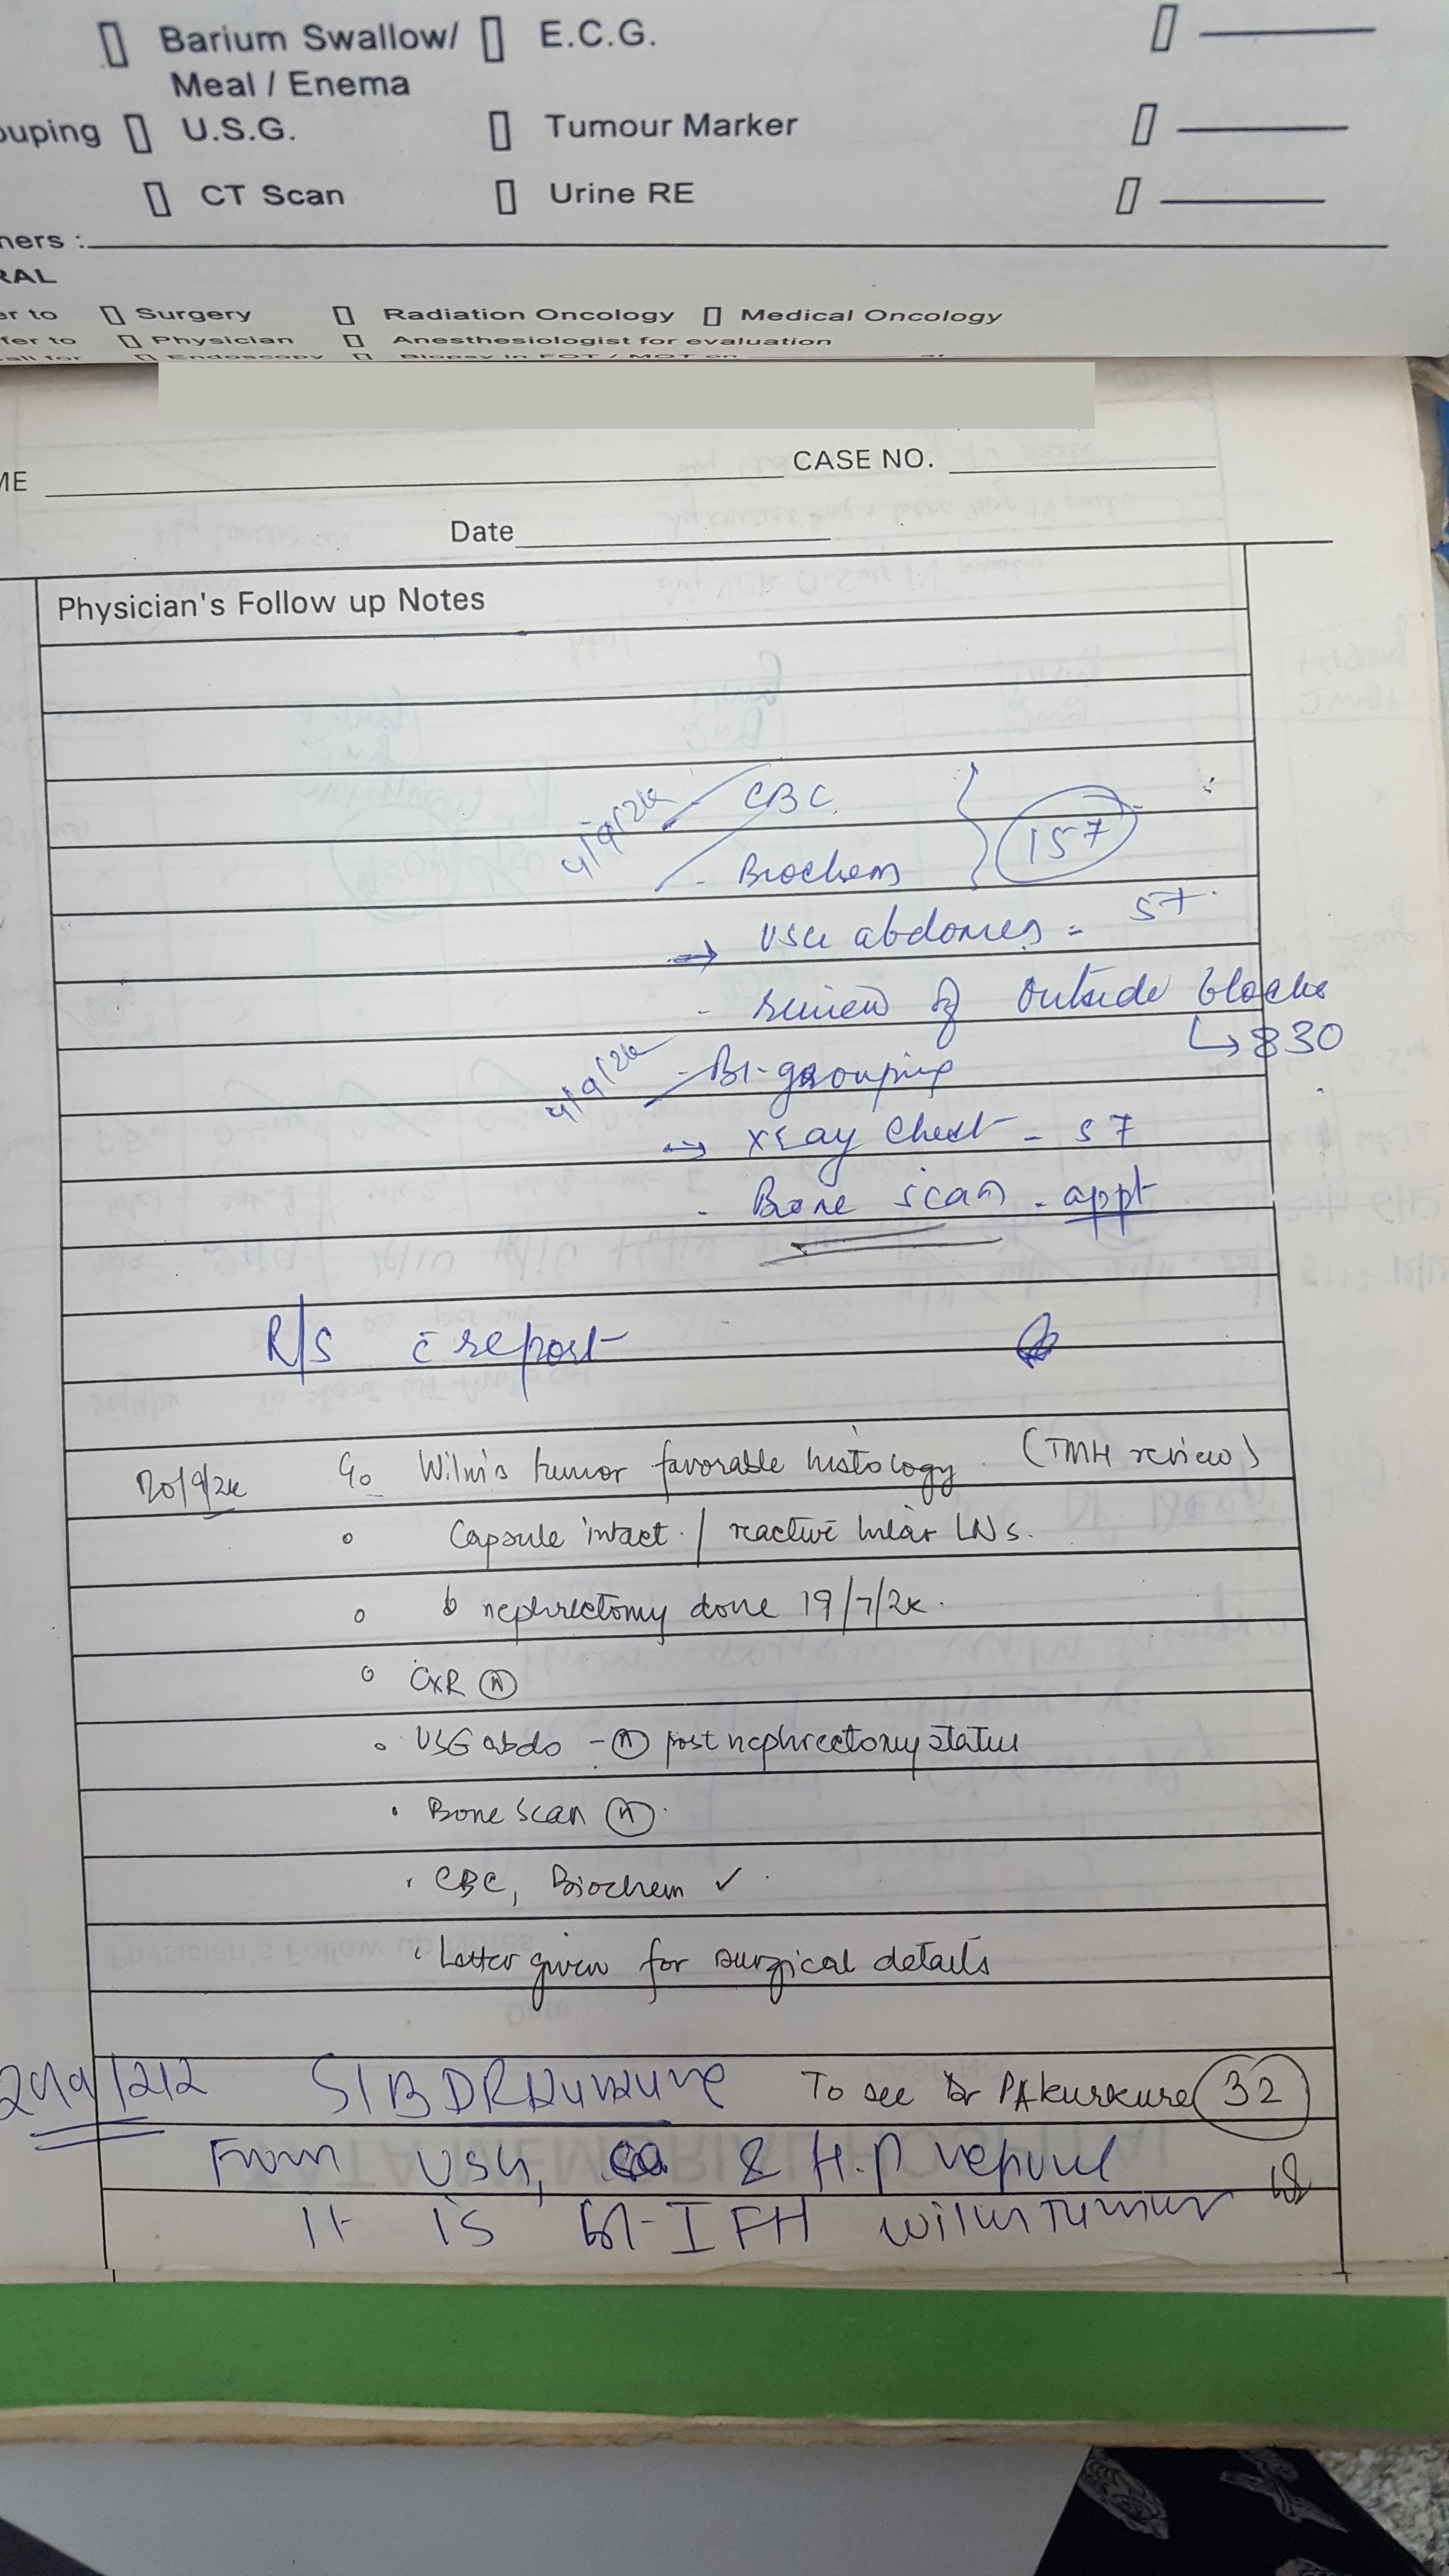 Barium Swallow/ E.C.G.
Meal / Enema
ouping U.S.G. Tumour Marker
CT Scan Urine RE
hers :
RAL
er to Surgery Radiation Oncology Medical Oncology
fer to Physician Anesthesiologist for evaluation
all for Endoscopy Biopsy in EOT / MOT on at
ME CASE NO.
Date
Physician's Follow up Notes
4/9/2k - CBC
157
- Biochem
→ USG abdomen = 57
- review of outside blocks
↳ 830
4/9/2k - Bl-grouping
→ xray chest - 57
- Bone scan - appt
R/S c̄ report
20/9/2k Wilm's tumor favorable histology. (TMH review)
Capsule intact / reactive hilar LNs.
nephrectomy done 19/7/2k.
CXR (N)
USG abdo - (N) post nephrectomy status
Bone Scan (N)
CBC, Biochem ✓
Letter given for surgical details
S/B DR To see Dr PA Kurkure 32
From USG, & H.P report
It is I FH wilms Tumor